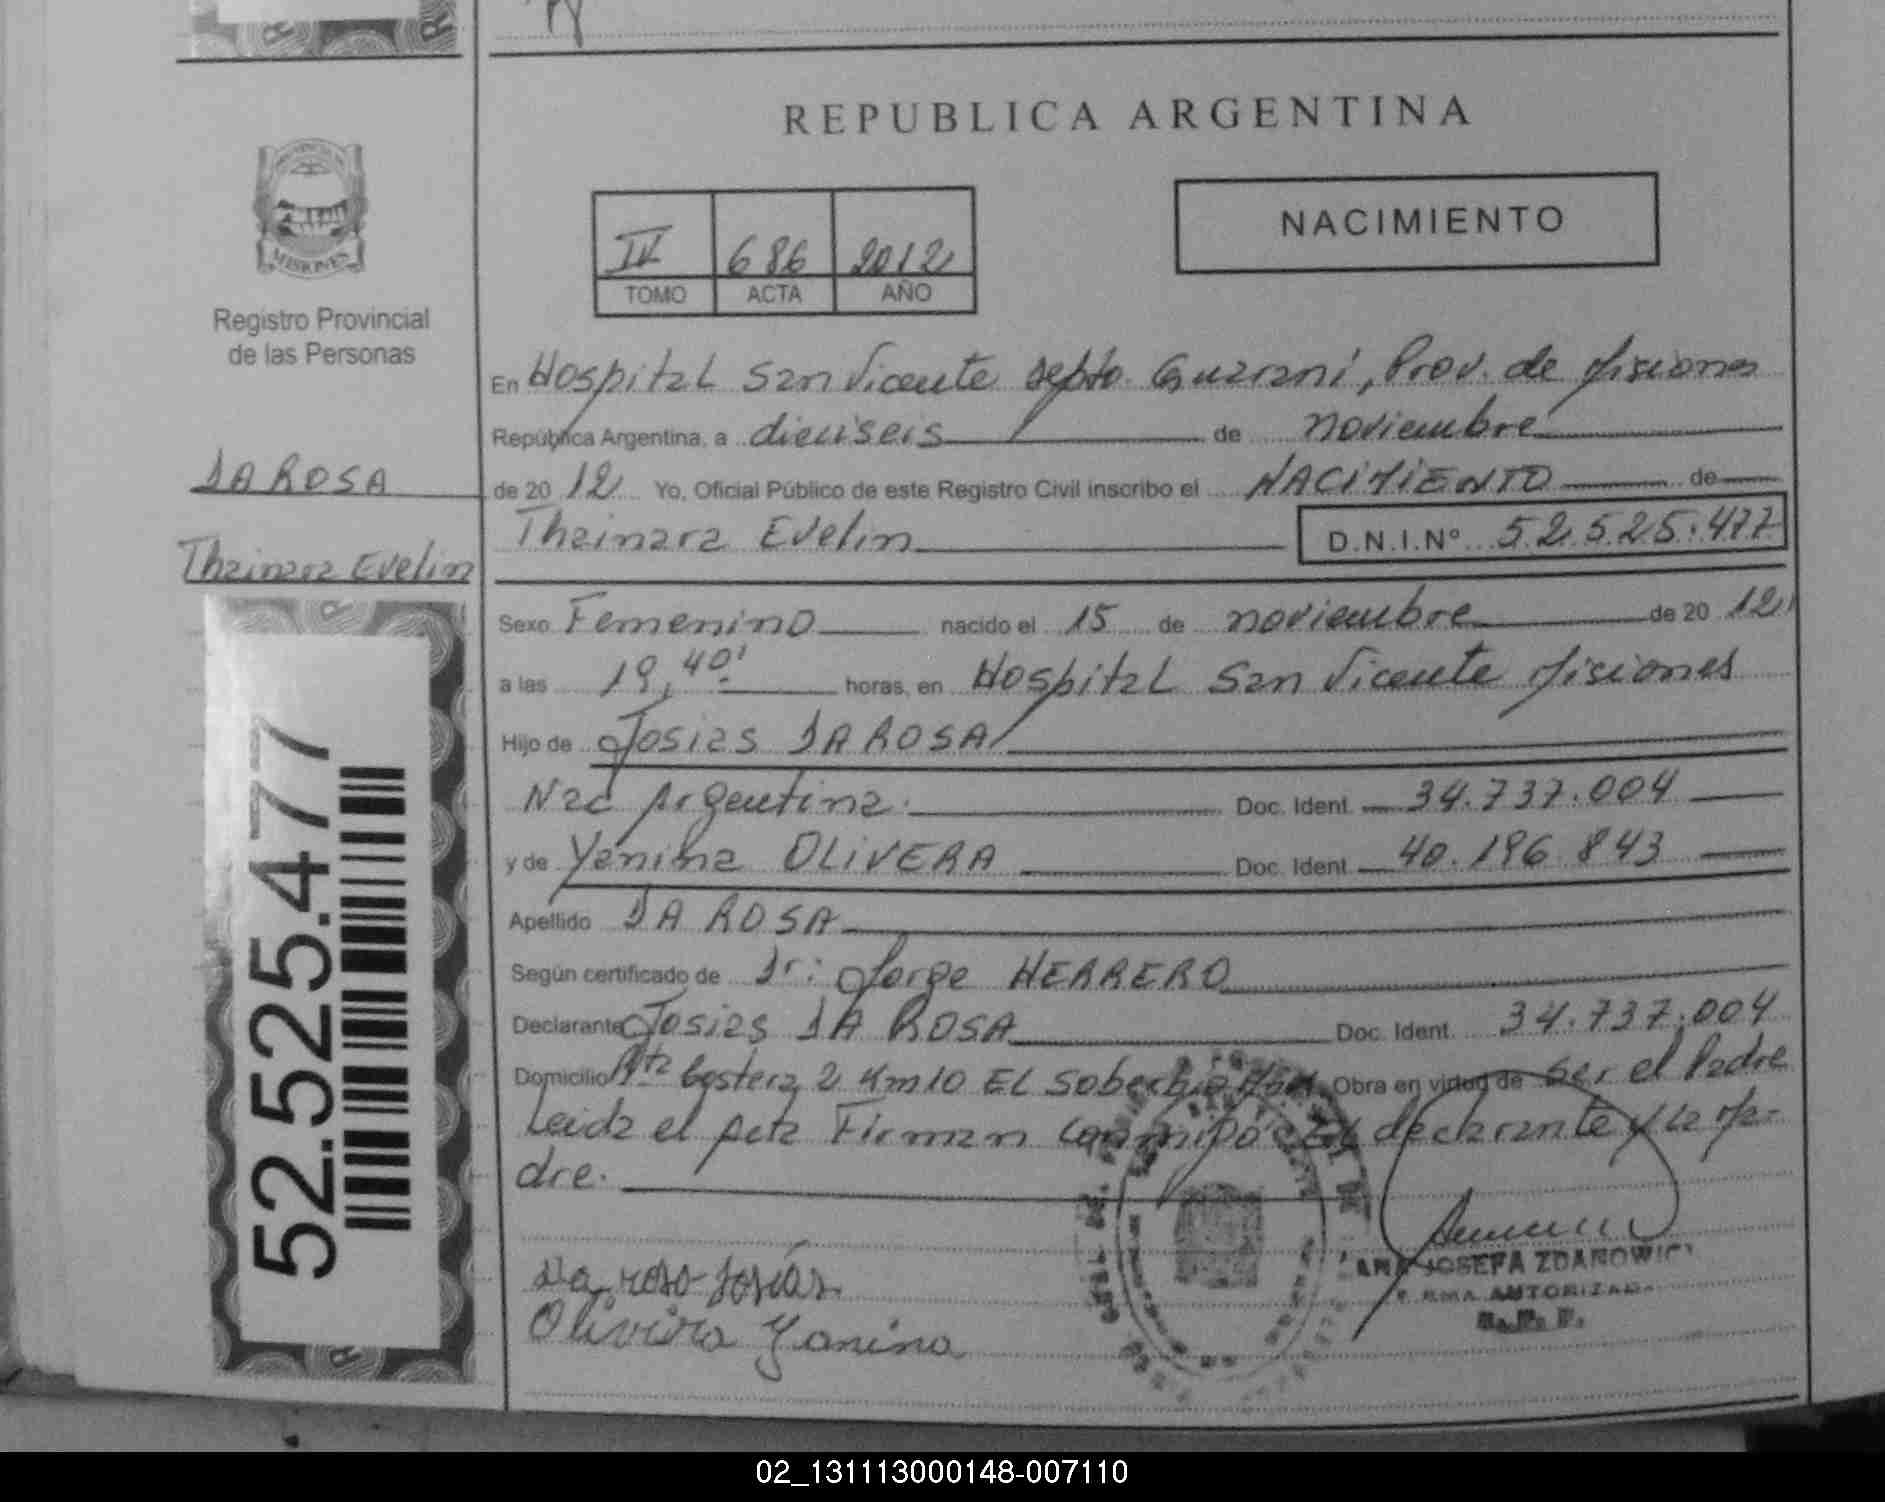 REPUBLICA ARGENTINA
MISIONES
Registro Provincial
de las Personas
DA ROSA
Thainara Evelin
52.525.477
IV 686 2012
TOMO ACTA AÑO
NACIMIENTO
En Hospital San Vicente depto. Guaraní, Prov. de Misiones
República Argentina, a dieciseis de noviembre
de 20 12 Yo, Oficial Público de este Registro Civil inscribo el NACIMIENTO de
Thainara Evelin D.N.I.Nº 52.525.477
Sexo Femenino nacido el 15 de noviembre de 20 12
a las 19,40' horas, en Hospital San Vicente Misiones
Hijo de Josias DA ROSA
Nac Argentina. Doc. Ident. 34.737.004
y de Yanina OLIVERA Doc. Ident. 40.196.843
Apellido DA ROSA
Según certificado de Dr: Jorge HERRERO
Declarante Josias DA ROSA Doc. Ident. 34.737.004
Domicilio Rta Costera 2 Km 10 EL Soberbio Obra en virtud de ser el Padre
Leida el Acta Firman conmigo el declarante y la Ma-
dre.
Da rosa Josías
Olivera Yanina
JOSEFA ZDANOWICZ
FIRMA AUTORIZADA
02_131113000148-007110